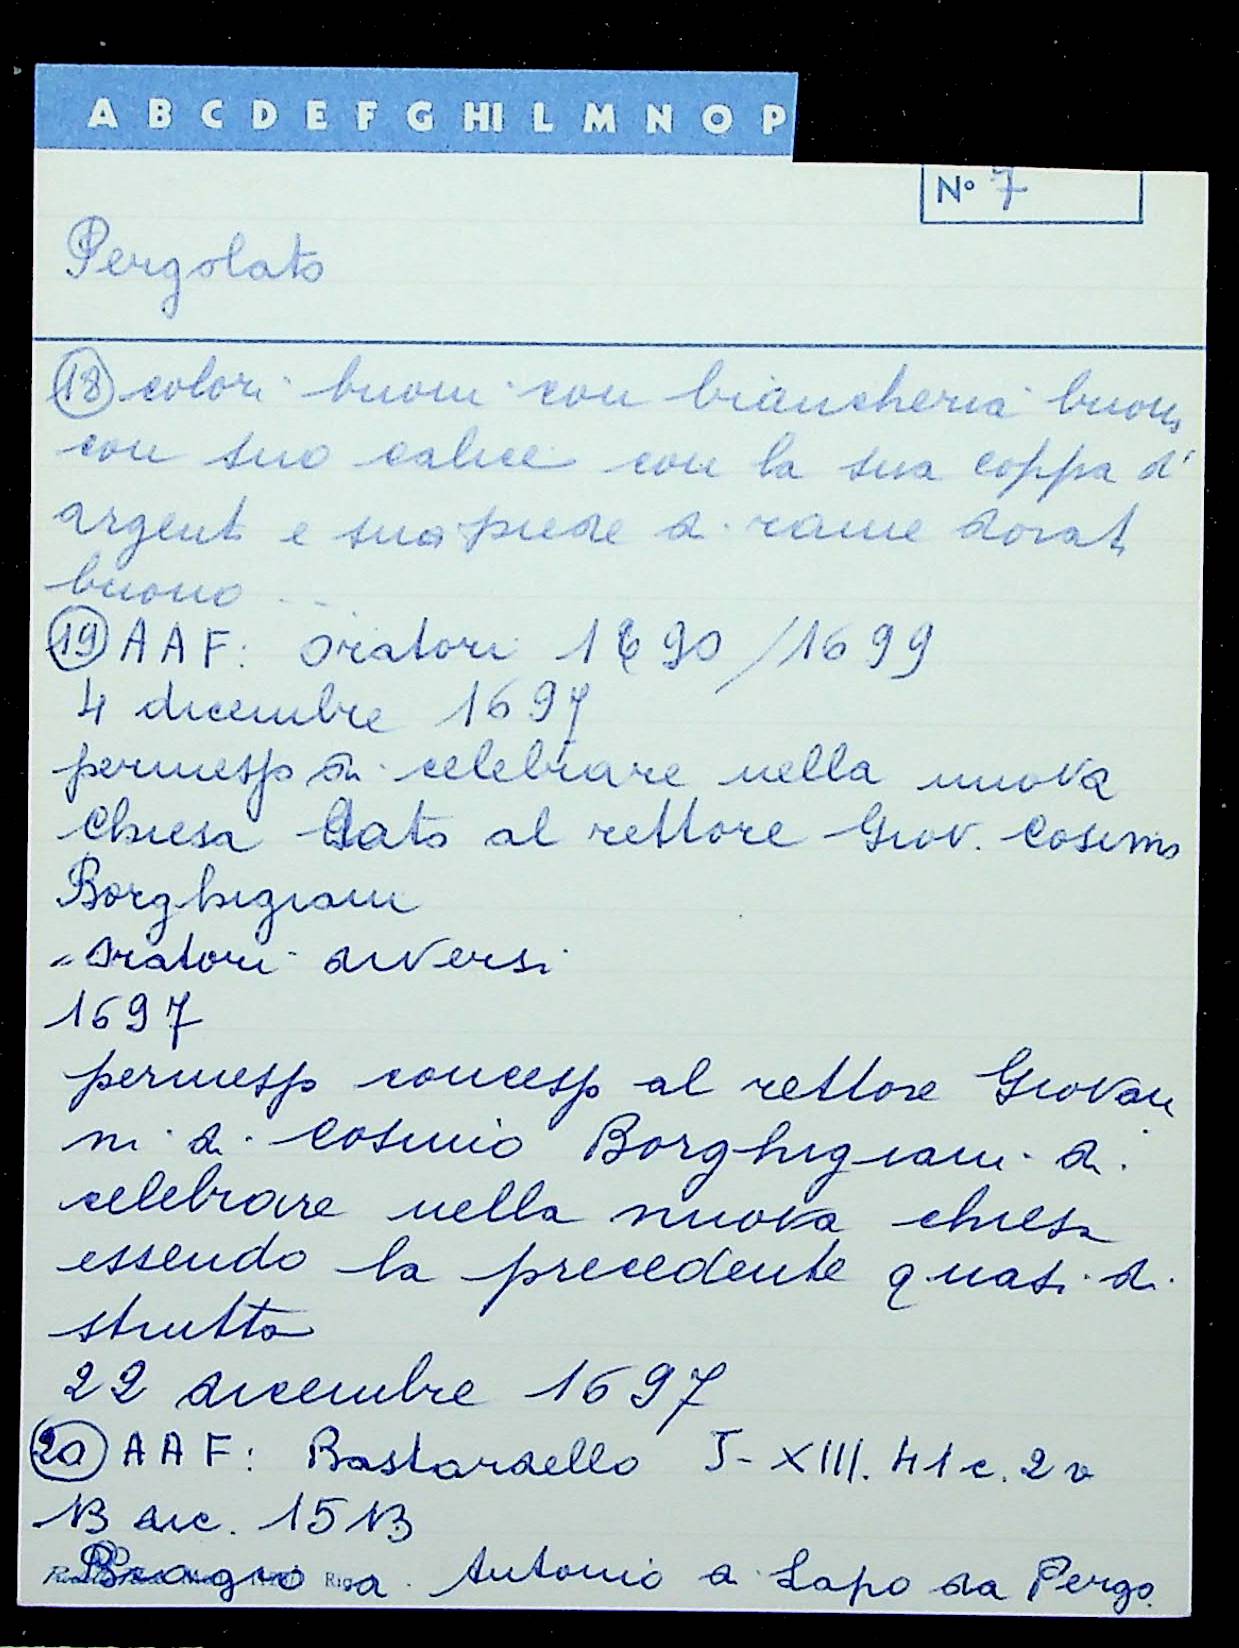 A B C D E F G HI L M N O P
N° 7
Pergolato
18 colori buoni con biancheria buona
con suo calice con la sua coppa d'
argento e suo piede di rame dorato
buono ...
19 AAF: Oratori 1690/1699
4 dicembre 1697
permesso di celebrare nella nuova
Chiesa dato al rettore Giov. Cosimo
Borghigiani
- Oratori diversi
1697
permesso concesso al rettore Giovan
ni di Cosimo Borghigiani di
celebrare nella nuova chiesa
essendo la precedente quasi di
strutta
22 dicembre 1697
20 AAF: Bastardello I-XIII. 41 c. 2v
13 dic. 1513
Biagio di Antonio di Lapo da Pergo